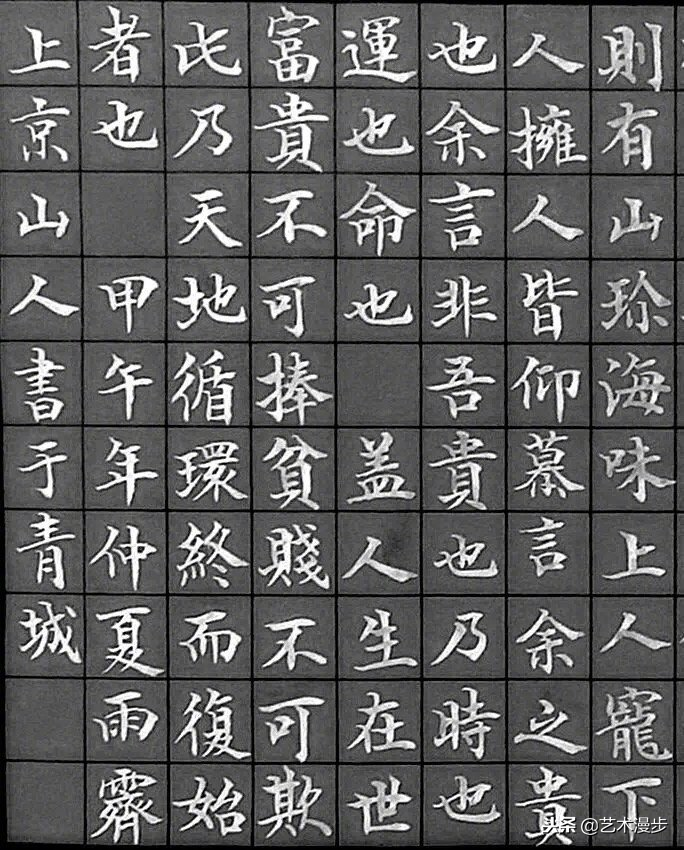 則有山珎海味上人寵下
人擁人皆仰慕言余之貴
也余言非吾貴也乃時也
運也命也 盖人生在世
富貴不可捧貧賤不可欺
此乃天地循環終而復始
者也 甲午年仲夏雨霽
上京山人書于青城
头条 @艺术漫步